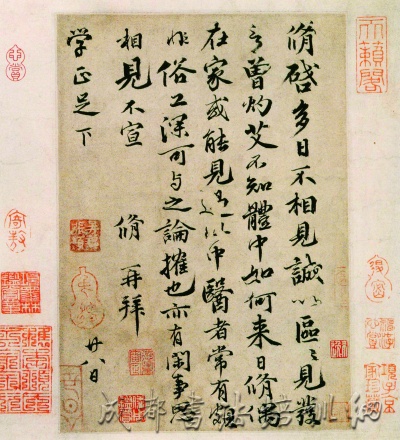 脩啓多日不相見誠以區々見發
言曾灼艾不知體中如何来日脩偶
在家或能見過此中醫者常有頗
非俗工深可與之論搉也亦有閑事思
相見不宣 脩再拜
廿八日
学正足下
天籟閣
成都書法培训网